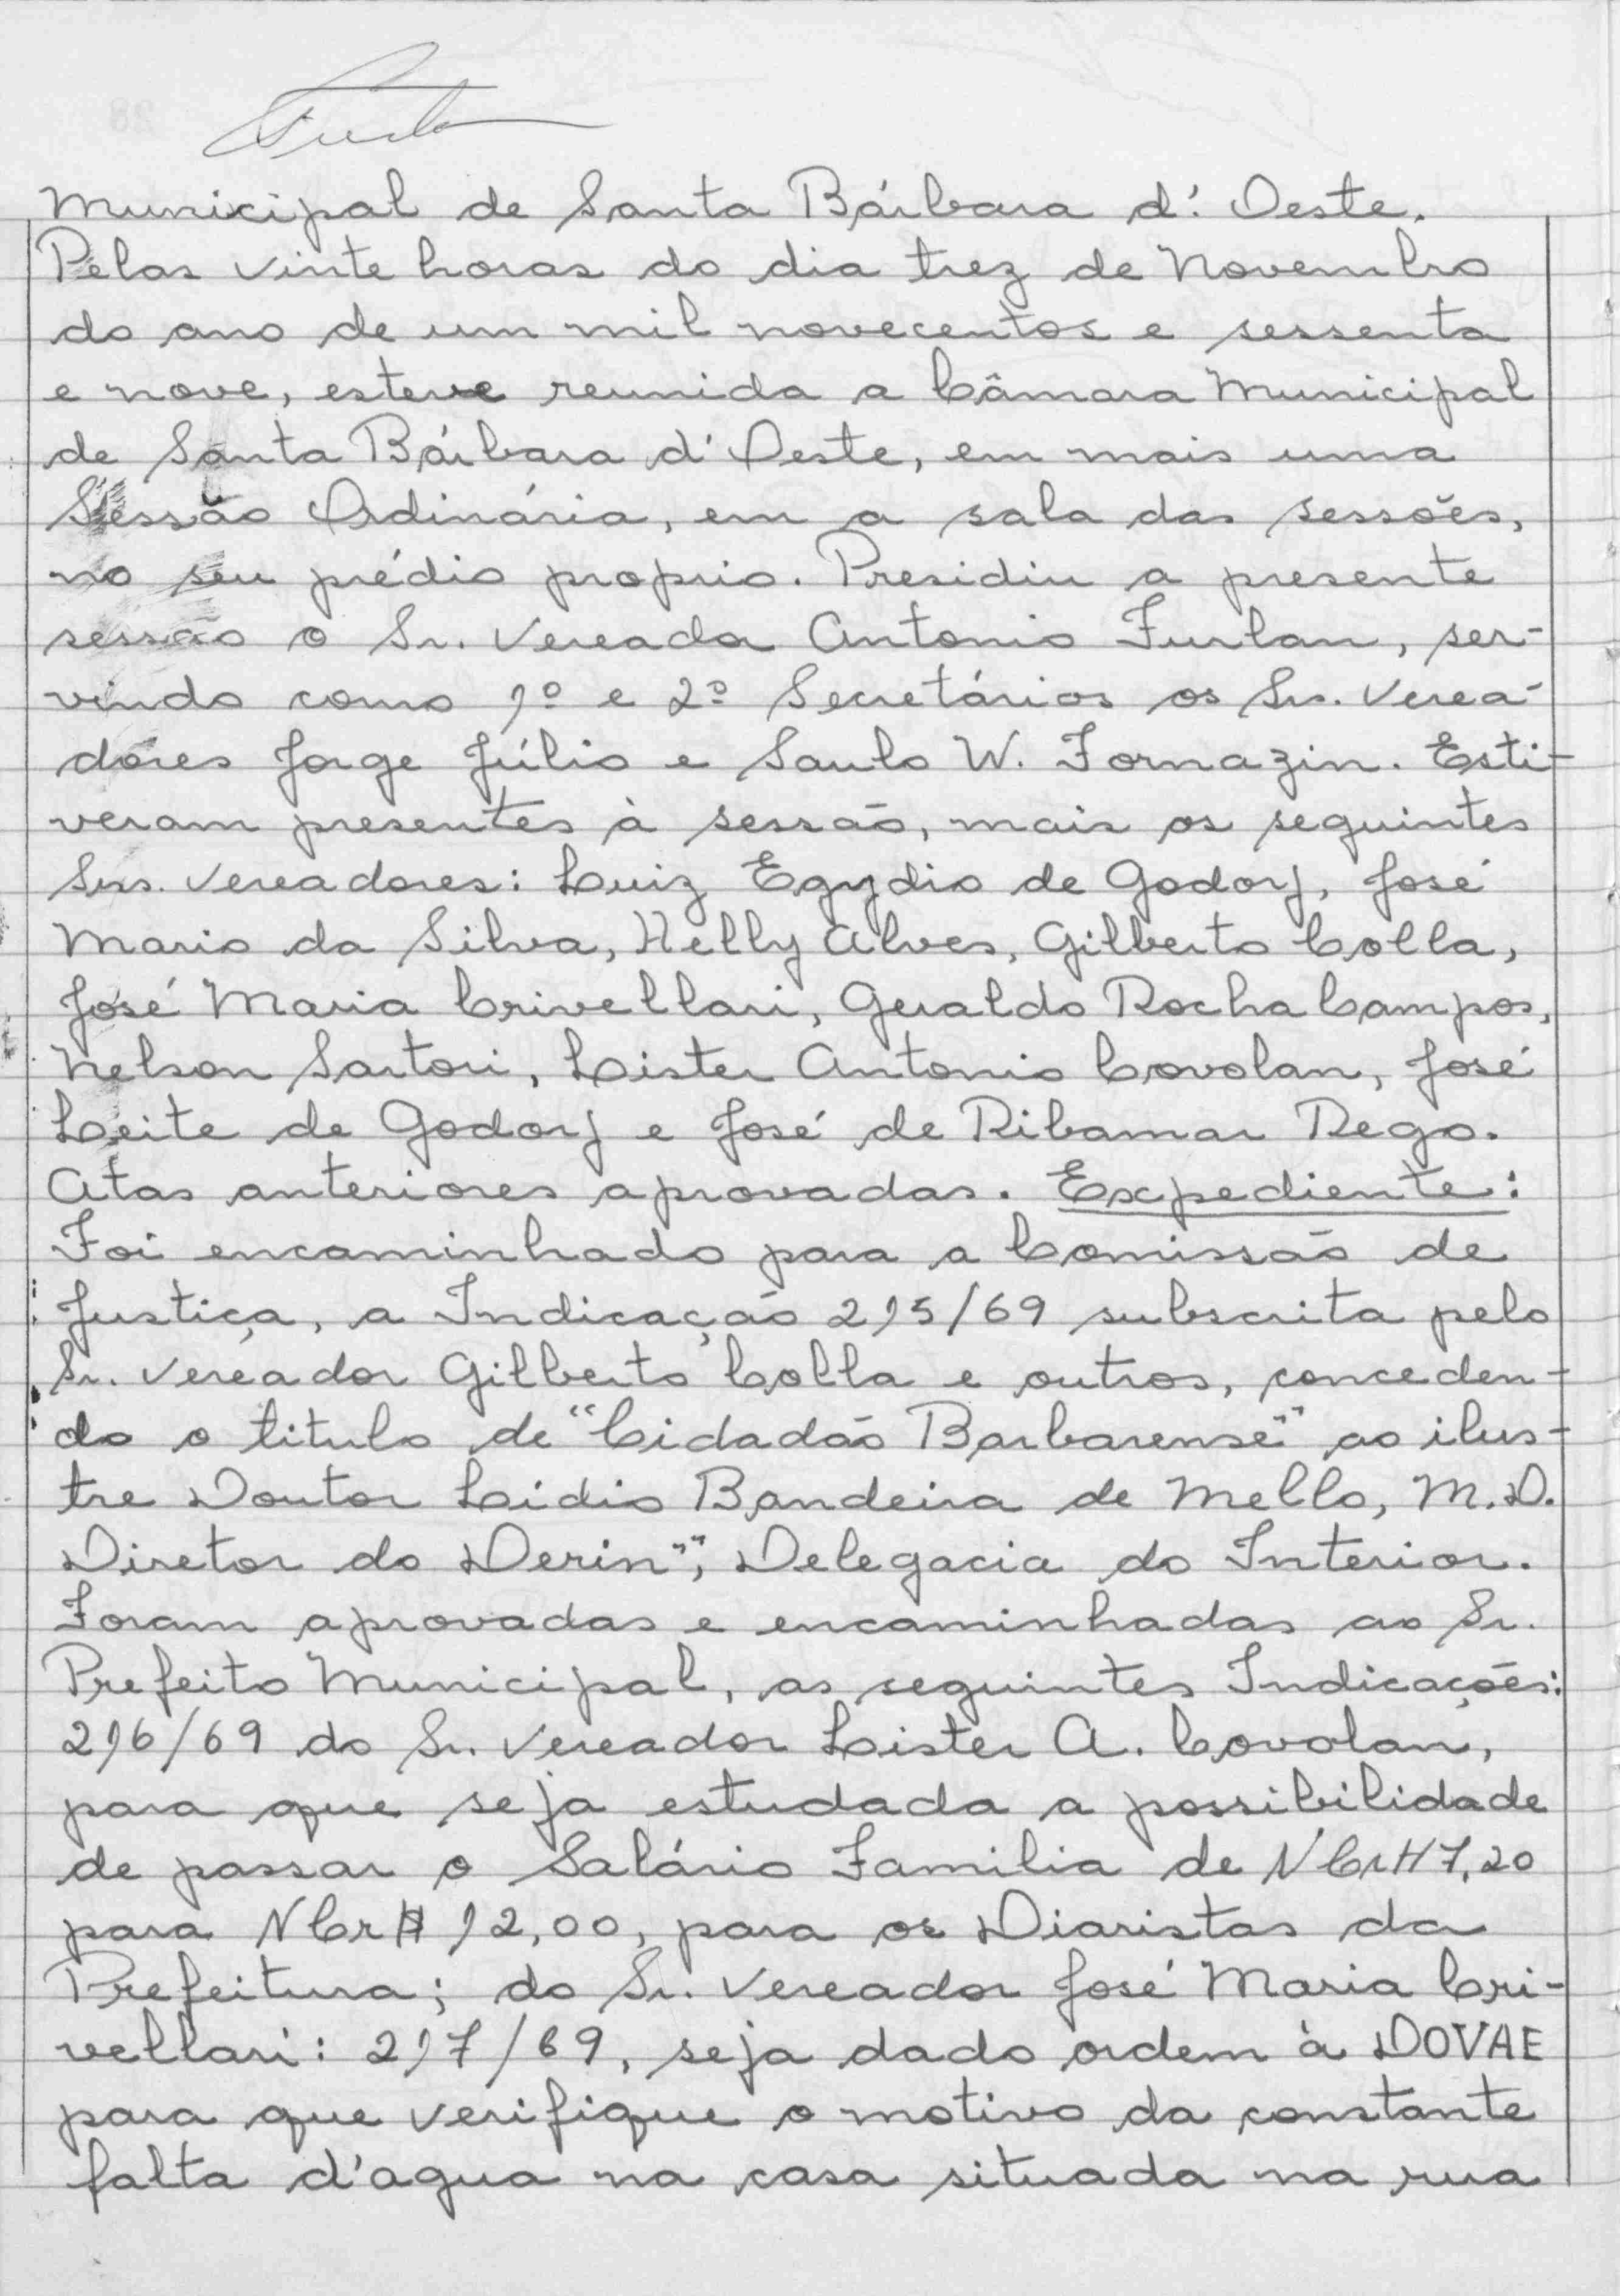 Municipal de Santa Bárbara d'. Oeste.
Pelas vinte horas do dia trez de Novembro
do ano de um mil novecentos e sessenta
e nove, esteve reunida a Câmara Municipal
de Santa Bárbara d'Oeste, em mais uma
Sessão Ordinária, em a sala das sessões,
no seu prédio proprio. Presidiu a presente
sessão o Sr. Vereador Antonio Furlan, ser-
vindo como 1º e 2º Secretários os Srs. Verea-
dores Jorge Júlio e Saulo W. Fornazin. Esti-
veram presentes à sessão, mais os seguintes
Srs. Vereadores: Luiz Egydio de Godoy, José
Mario da Silva, Helly Alves, Gilberto Colla,
José Maria Crivellari, Geraldo Rocha Campos,
Nelson Sartori, Lister Antonio Covolan, José
Leite de Godoy e José de Ribamar Rego.
Atas anteriores aprovadas. Expediente:
Foi encaminhado para a Comissão de
Justiça, a Indicação 215/69 subscrita pelo
Sr. Vereador Gilberto Colla e outros, conceden-
do o titulo de "Cidadão Barbarense" ao ilus-
tre Doutor Lidio Bandeira de Mello, M.D.
Diretor do Derin", Delegacia do Interior.
Foram aprovadas e encaminhadas ao Sr.
Prefeito Municipal, as seguintes Indicações:
216/69 do Sr. Vereador Lister A. Covolan,
para que seja estudada a possibilidade
de passar o Salário Familia de NCr$ 7,20
para NCr$ 12,00, para os Diaristas da
Prefeitura; do Sr. Vereador José Maria Cri-
vellari: 217/69, seja dado ordem à DOVAE
para que verifique o motivo da constante
falta d'agua na casa situada na rua